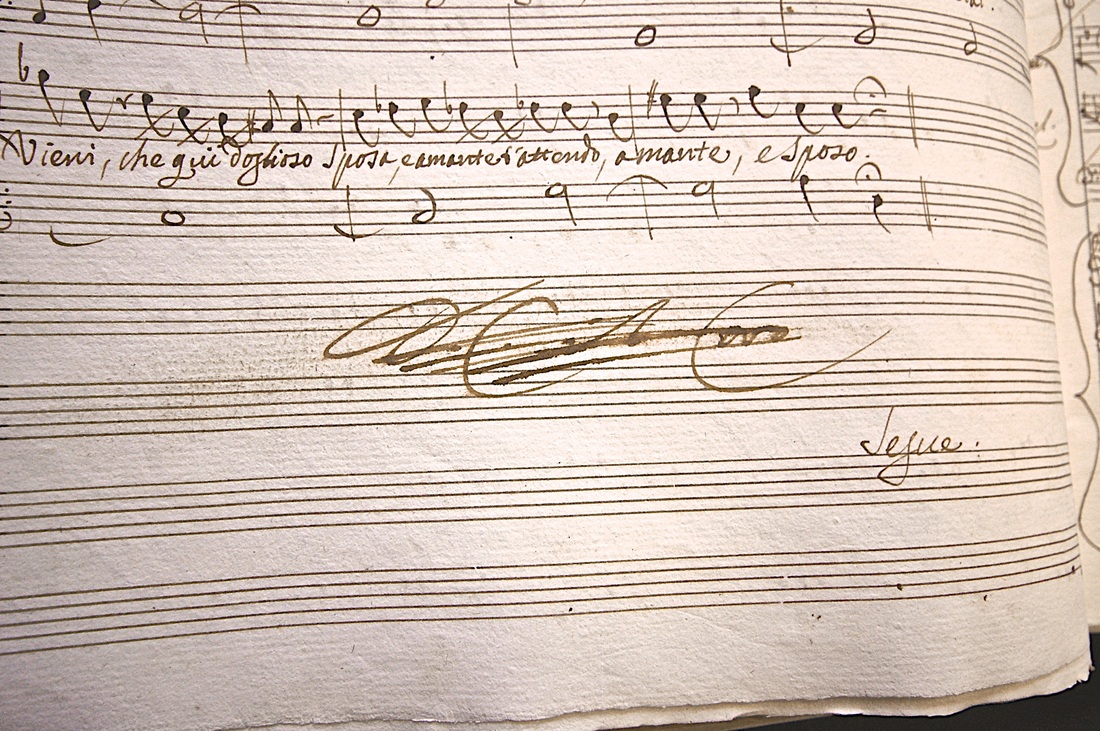 Vieni, che qui doglioso sposa, e amante t'attendo, amante, e sposo.
Segue.